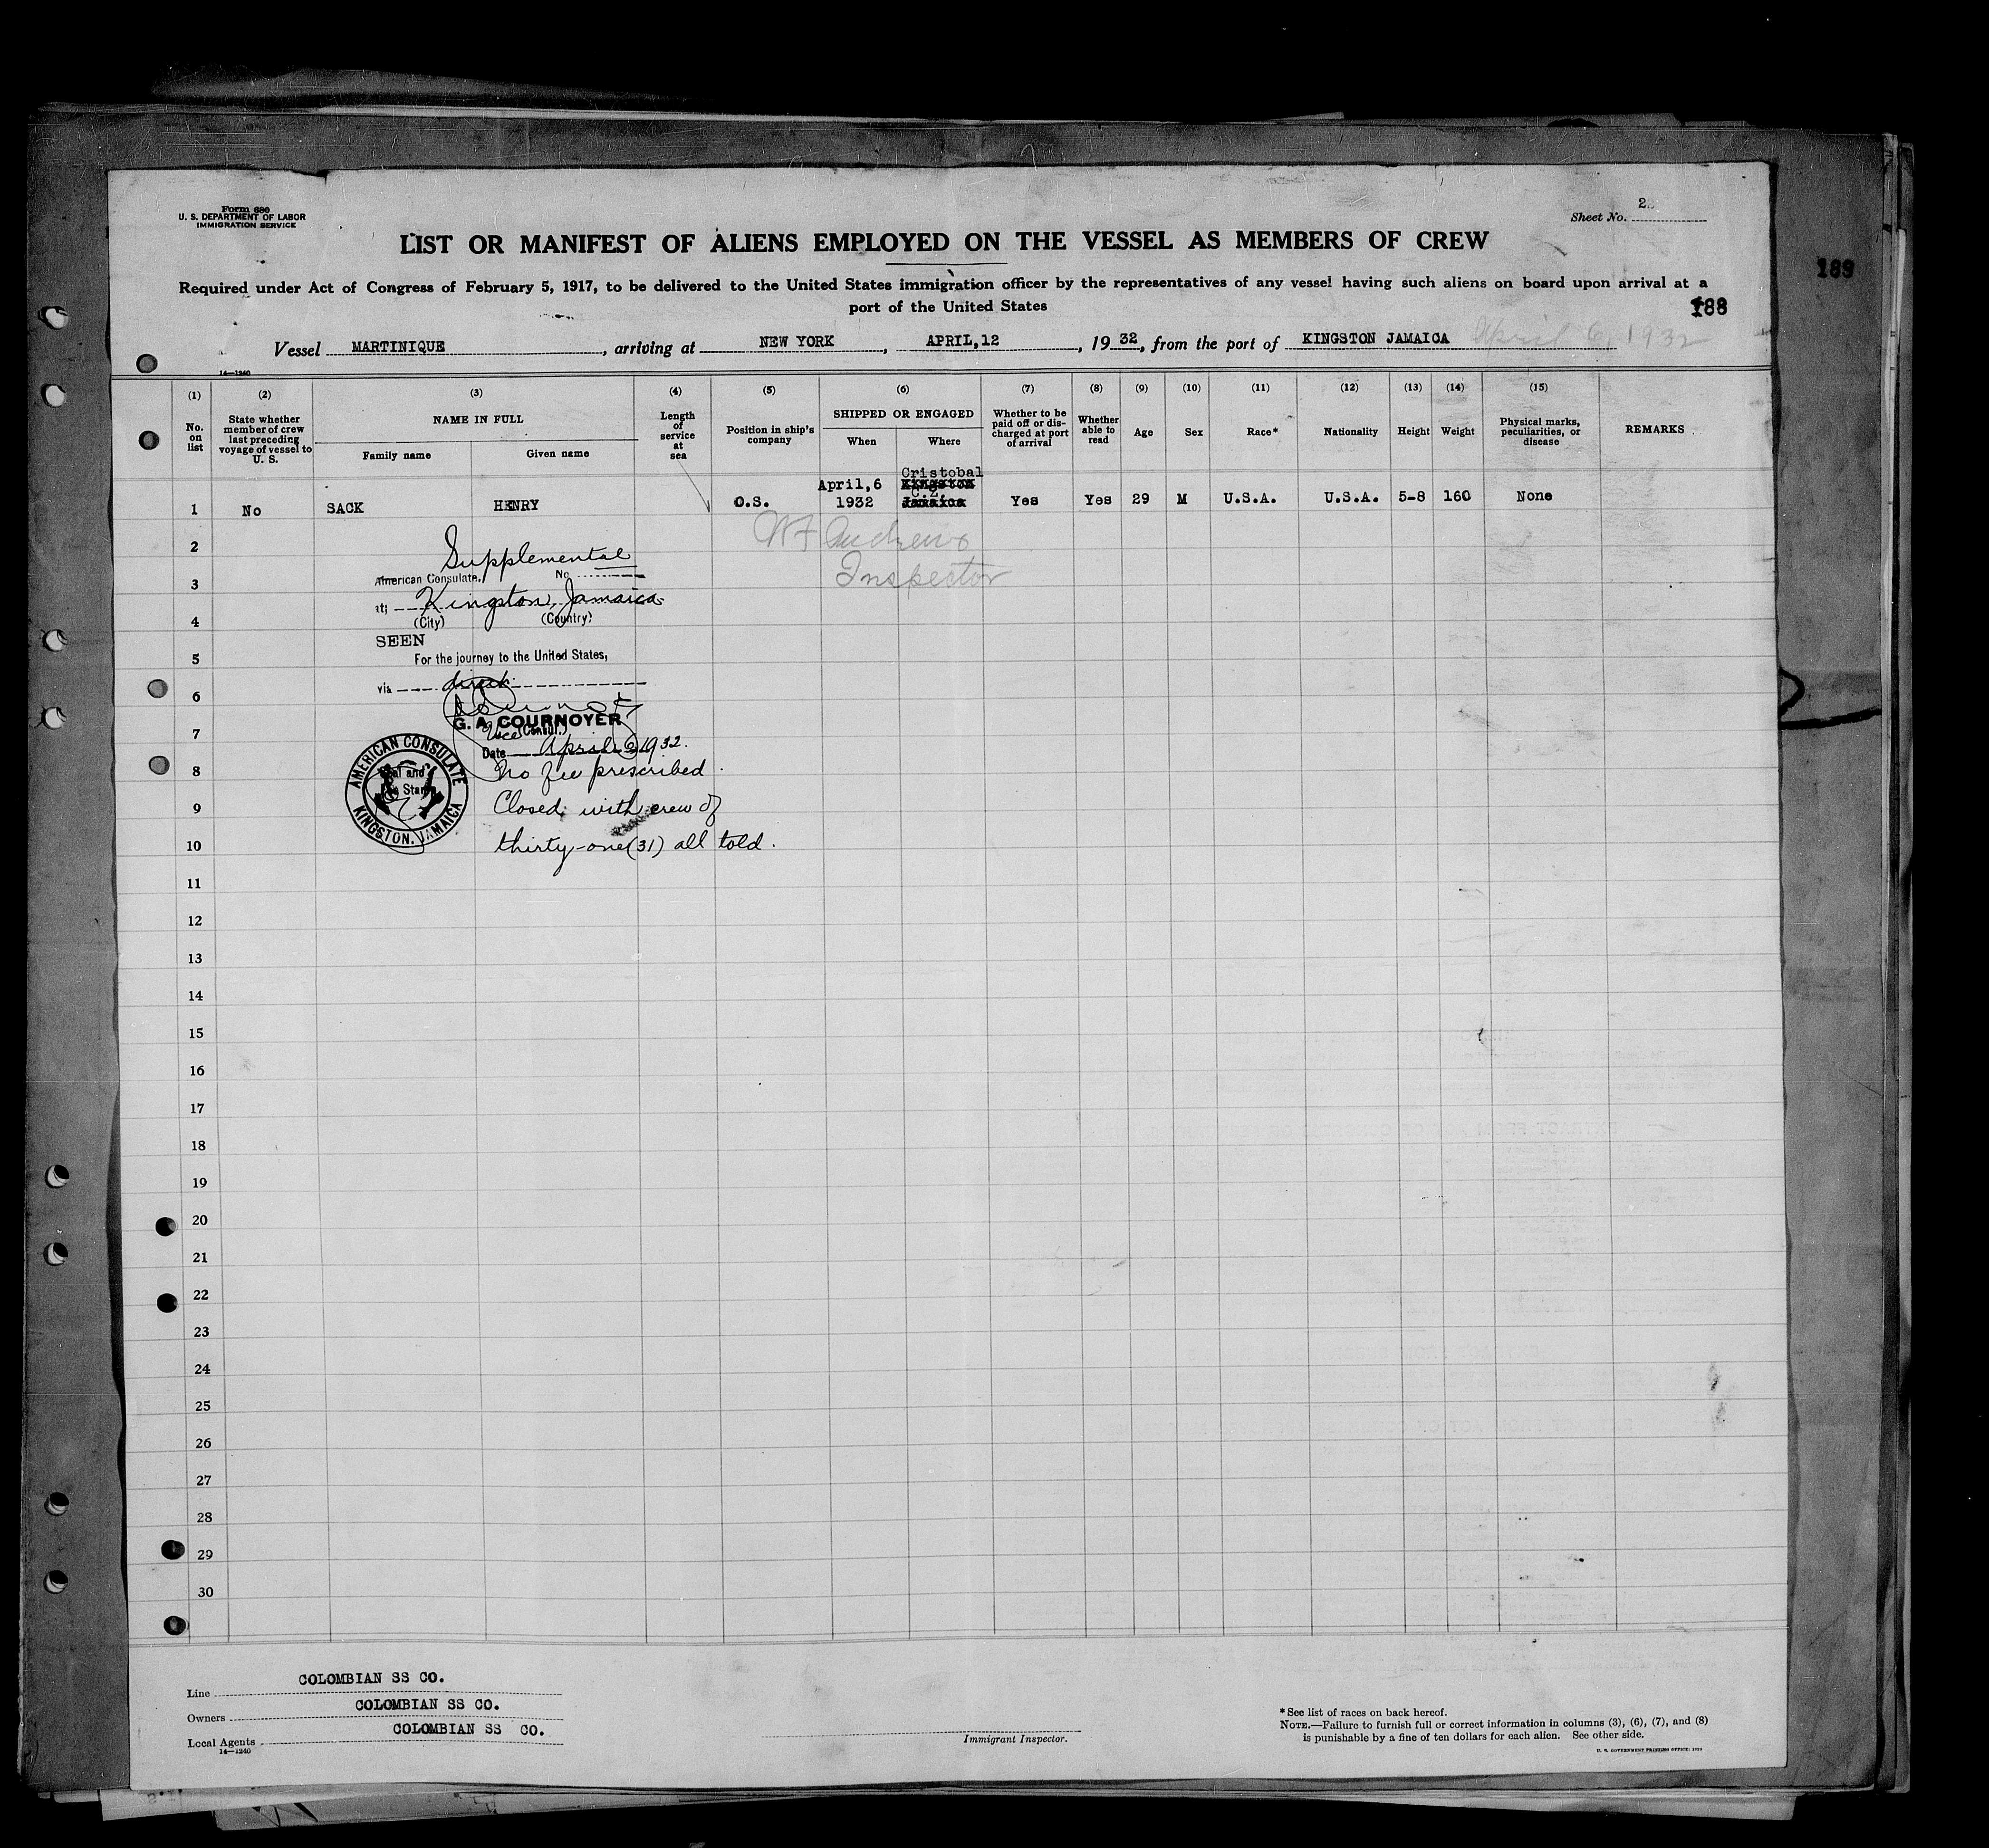 Form 680
U. S. DEPARTMENT OF LABOR
IMMIGRATION SERVICE
Sheet No. 2
LIST OR MANIFEST OF ALIENS EMPLOYED ON THE VESSEL AS MEMBERS OF CREW
189
Required under Act of Congress of February 5, 1917, to be delivered to the United States immigration officer by the representatives of any vessel having such aliens on board upon arrival at a
port of the United States
188
Vessel MARTINIQUE, arriving at NEW YORK, APRIL,12, 1932, from the port of KINGSTON JAMAICA April 6, 1932
14—1240
(1) (2) (3) (4) (5) (6) (7) (8) (9) (10) (11) (12) (13) (14) (15)
No. on list
State whether member of crew last preceding voyage of vessel to U. S.
NAME IN FULL
Family name
Given name
Length of service at sea
Position in ship's company
SHIPPED OR ENGAGED
When
Where
Whether to be paid off or discharged at port of arrival
Whether able to read
Age
Sex
Race*
Nationality
Height
Weight
Physical marks, peculiarities, or disease
REMARKS
Cristobal
April,6 Kingston
C.Z.
1 No SACK HENRY O.S. 1932 Jamaica Yes Yes 29 M U.S.A. U.S.A. 5-8 160 None
2 Andrews
Supplemental
American Consulate, No
3 Inspector
at Kingston, Jamaica
4 (City) (Country)
SEEN
5 For the journey to the United States,
via direct
6
G. A. COURNOYER
7 Vice (Consul.)
Date April 6 1932.
AMERICAN CONSULATE
KINGSTON, JAMAICA
Seal and
Fee Stamp
8 No fee prescribed.
9 Closed with crew of
10 thirty-one (31) all told.
11
12
13
14
15
16
17
18
19
20
21
22
23
24
25
26
27
28
29
30
Line COLOMBIAN SS CO.
Owners COLOMBIAN SS CO.
Local Agents COLOMBIAN SS CO.
14—1240
Immigrant Inspector.
*See list of races on back hereof.
NOTE.—Failure to furnish full or correct information in columns (3), (6), (7), and (8)
is punishable by a fine of ten dollars for each alien. See other side.
U. S. GOVERNMENT PRINTING OFFICE: